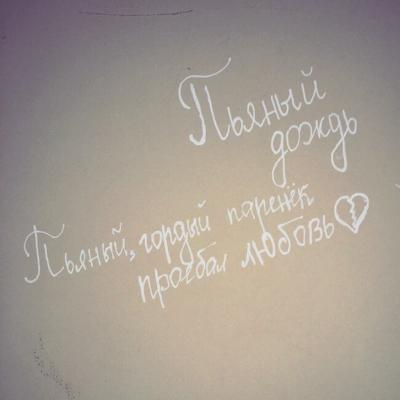 Пьяный
дождь
Пьяный, гордый паренёк
проебал любовь